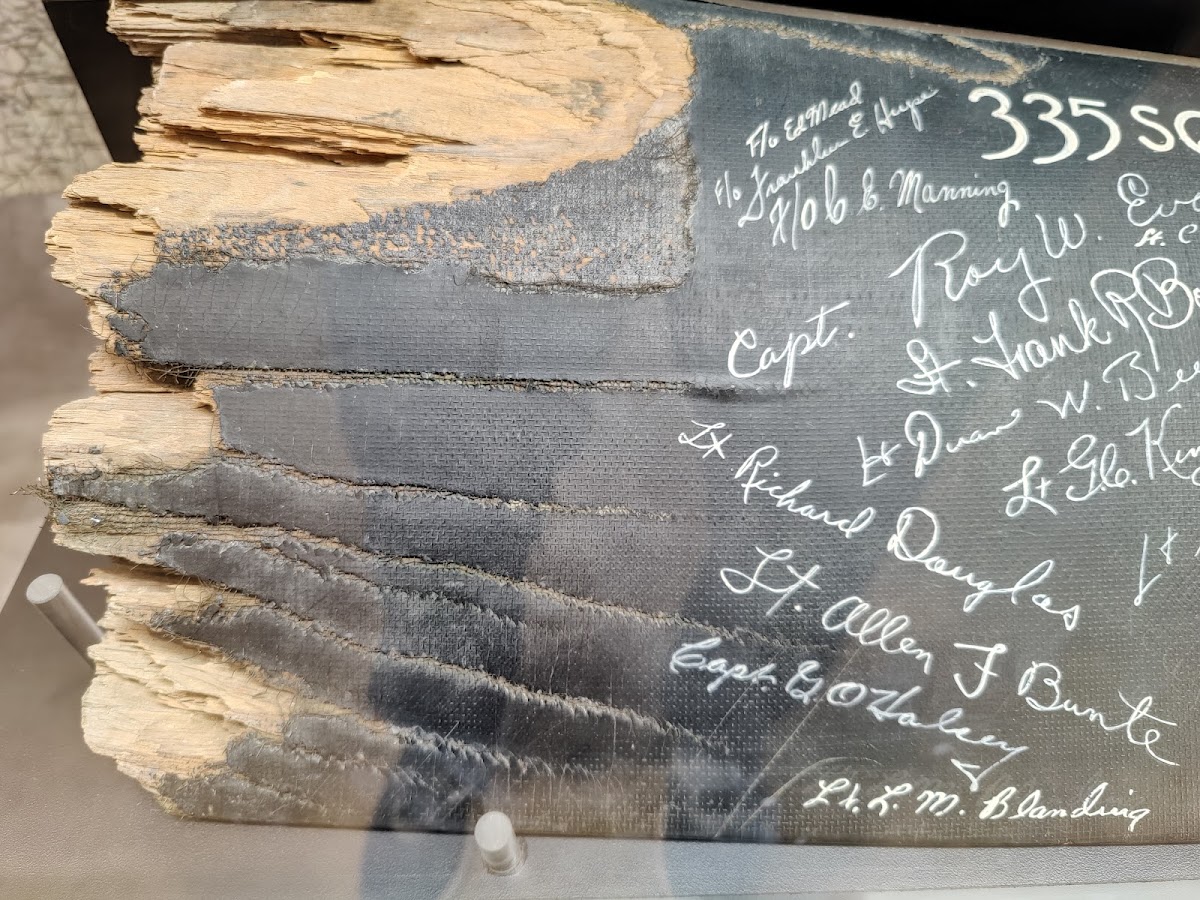 F/o Ed Mead
F/o Franklin E
335 SQ
F/o C E. Manning
Roy W. Eva
Lt. C
Capt.
Lt. Frank R Bo
Lt Duan W. Bee
Lt G.C. Kin
Lt Richard Douglas
Lt
Lt. Allen F Bunte
Capt. G. O Halsey
Lt. L. M. Blanding